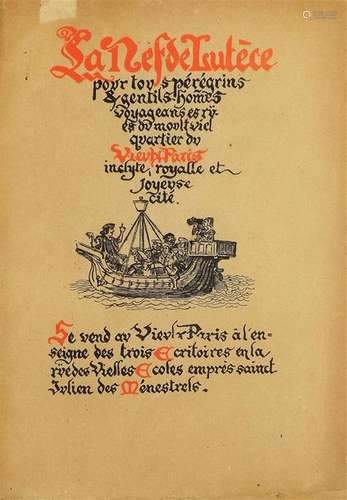 La Nef de Lutèce
povr tovs pérégrins
& gentils homes
voyageans es rv
es dv movlt viel
qvartier dv
Vievx Paris
inclyte, royalle et
joyevse
cité.
Se vend av Vievx Paris à l'en-
seigne des trois Ecritoires en la
rve des Vielles Ecoles emprès sainct
Jvlien des Ménestrels.